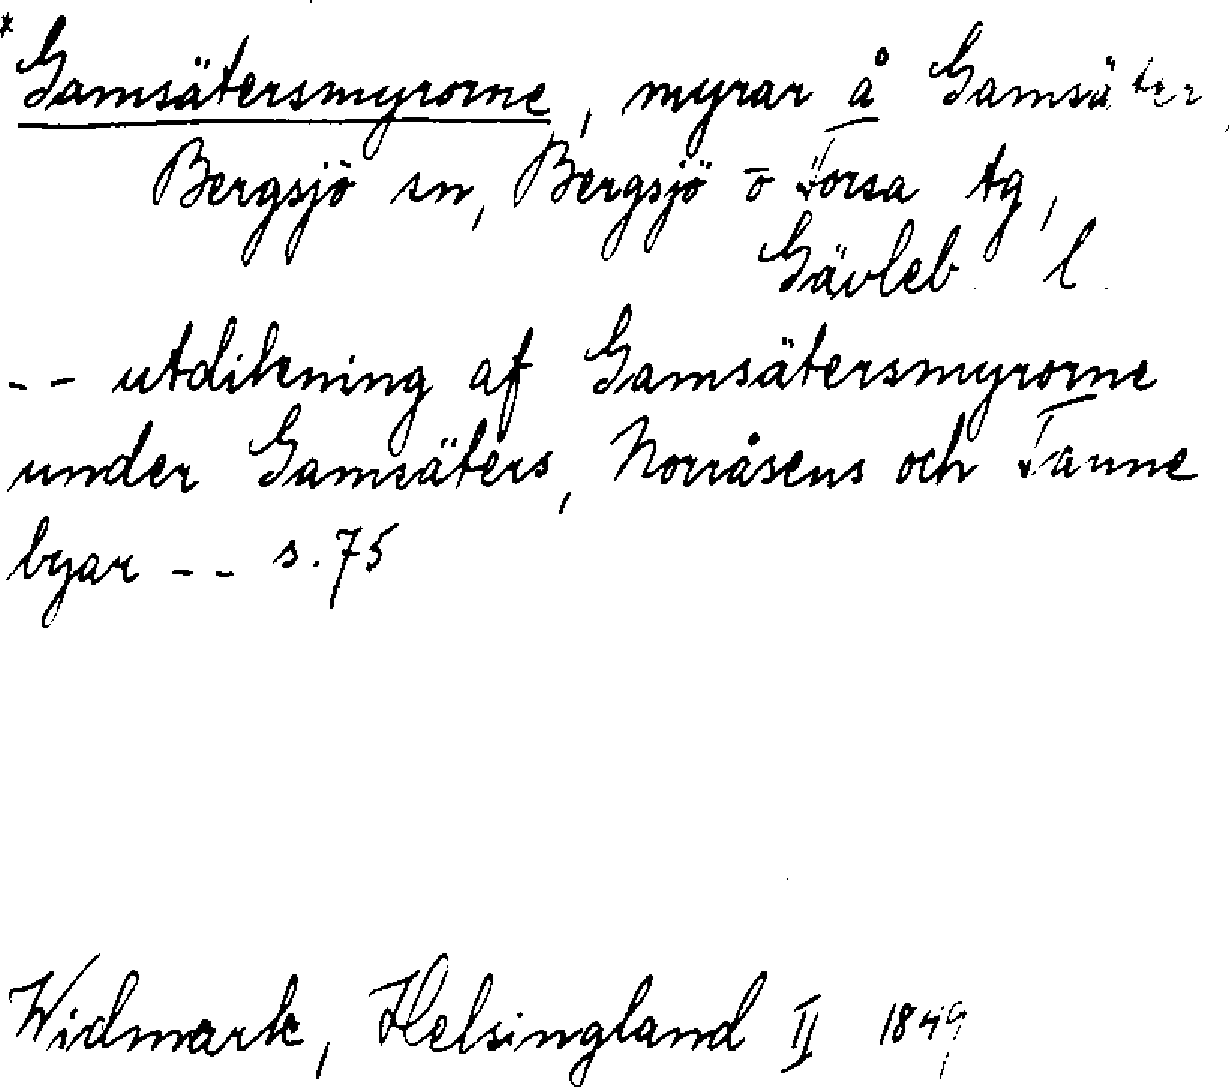 *Gamsätersmyrorne, myrar å Gamsäter,
Bergsjö sn, Bergsjö o Forsa tg,
Gävleb. l.
-- utdikning af Gamsätersmyrorne
under Gamsäters, Norråsens och Fanne
byar -- s. 75
Widmark, Helsingland II 1849